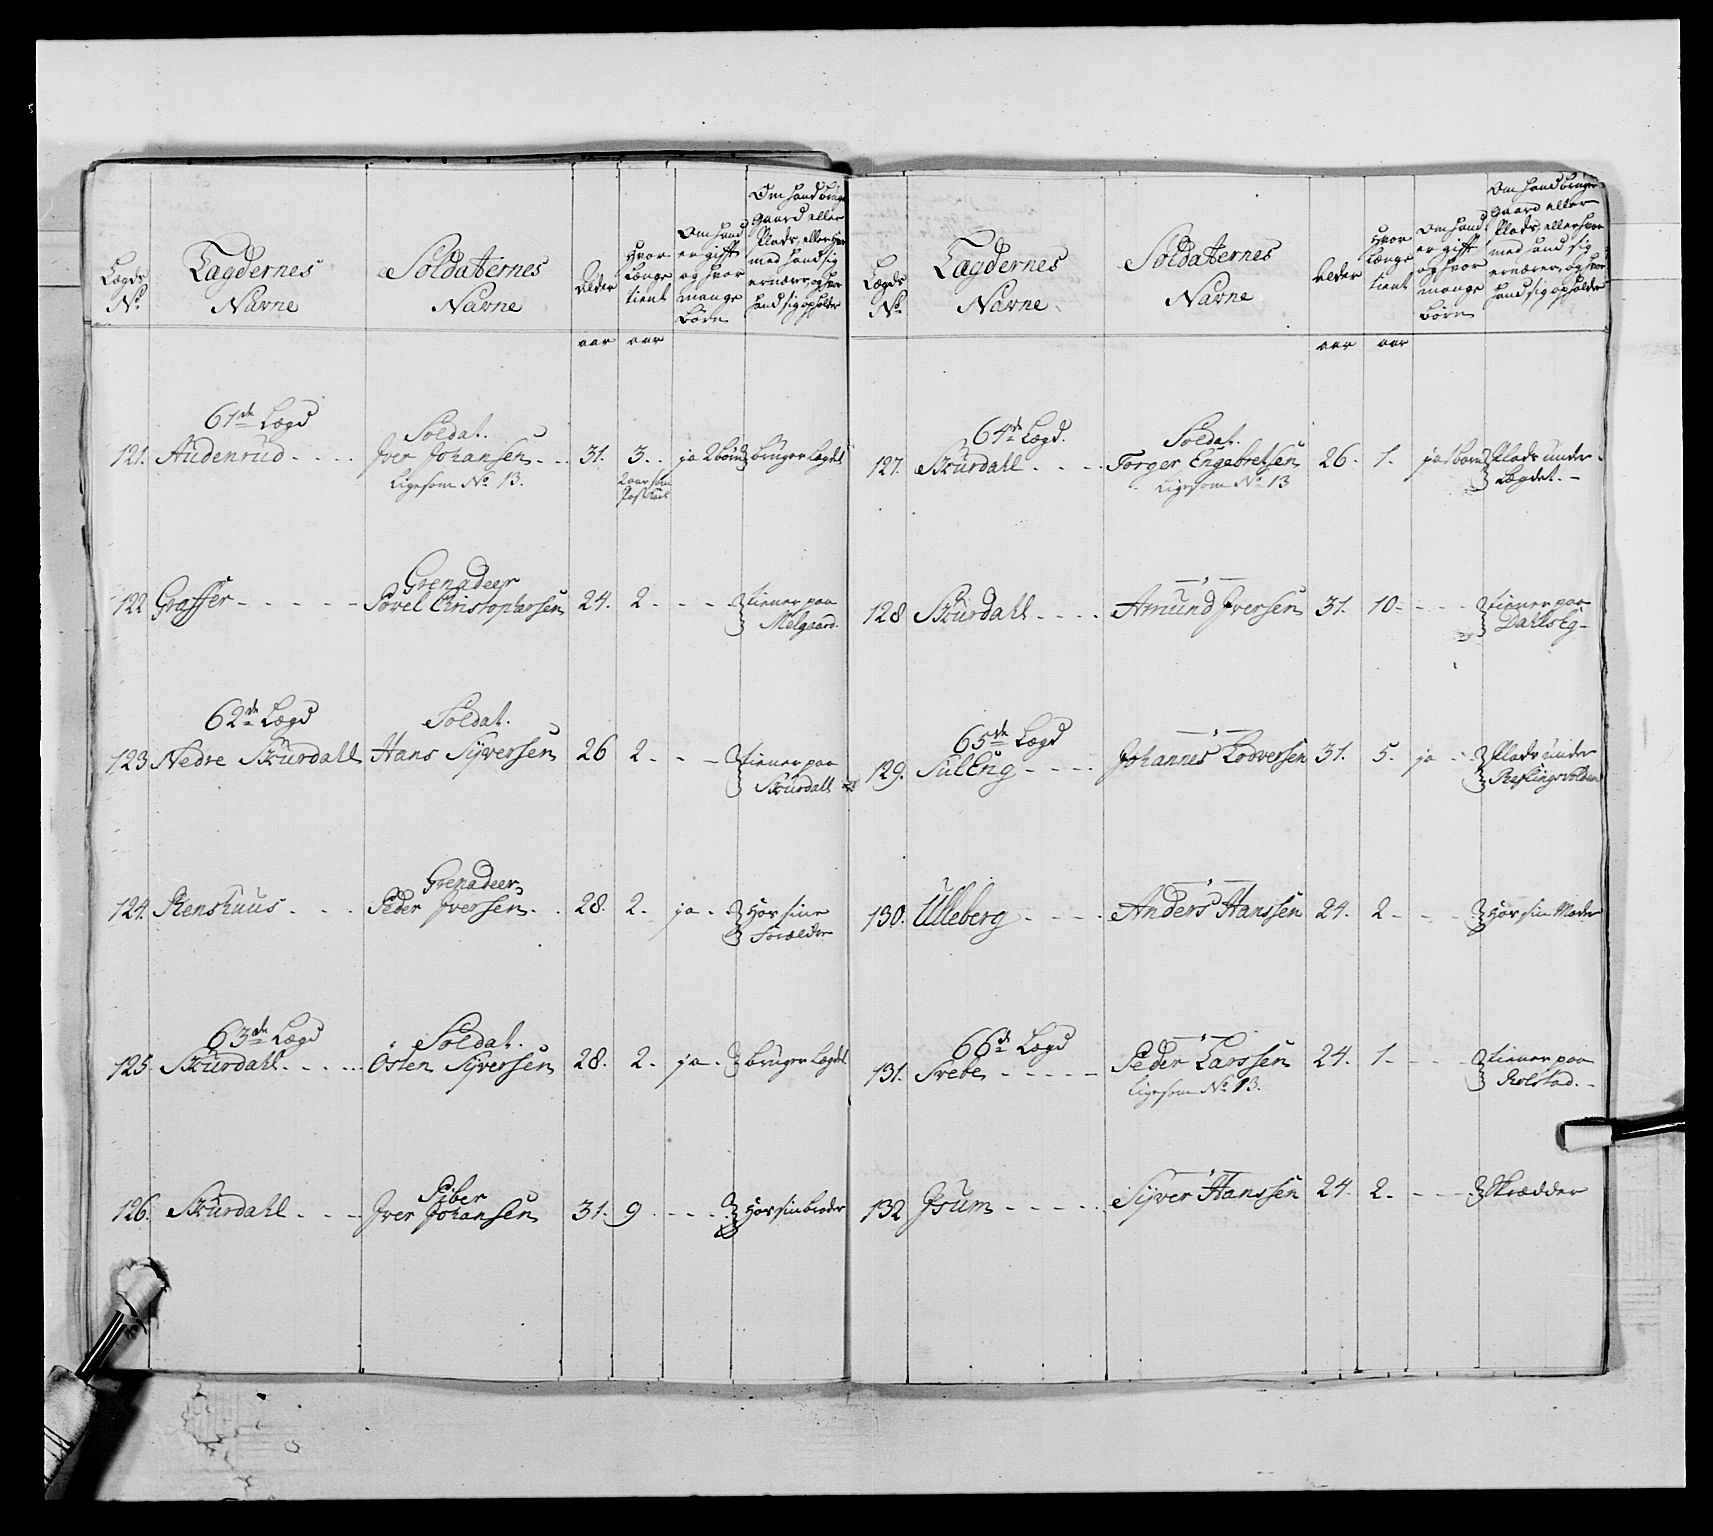 Lægds No.
Lagdernes Navne
Soldaternes Navne
Alder
Hvor Længe tient
Om hand er gift og hvor mange Børn
Om hand bruger Gaard eller Plads, eller hvor med hand sig ernærer, og hvor hand sig opholder
aar aar
61de Lægd
Soldat.
121. Audenrud - - - - Iver Johansen - - 31. 3. ja 2 børn bruger Lægdet
Ligesom No. 13. 2 aar som
Grenadeer
122 Graffer - - - - - Povel Christophersen 24. 2. - - - tiener paa
Melgaard.
62de Lægd Soldat.
123 Nedre Skurdahl Hans Syversen 26 2. - - tiener paa
Skurdall
Grenadeer
124. Stenshuus - - - Peder Iversen - - 28. 2. ja. Hos sine
Forældre
63de Lægd Soldat.
125. Skurdahl - - - - Østen Syversen 28. 2. ja. bruger Lægdet
Piber
126. Skurdahl - - - - Iver Johansen 31. 9. - - - - Hos sin broder
Lægds No.
Lagdernes Navne
Soldaternes Navne
Alder
Hvor Længe tient
Om hand er gift og hvor mange Børn
Om hand bruger Gaard eller Plads, eller hvor med hand sig ernærer, og hvor hand sig opholder
aar aar
64de Lægd. Soldat.
127. Skurdahl - - - - Torger Engebretsen 26. 1. ja 1 barn Plads under
Ligesom No 13 Lægdet. -
128 Skurdahl - - - - Amund Iversen 31. 10 - - - - tiener paa
Dahls Eg -
65de Lægd
129. Sul Eng - - - - Johannes Lodversen 31. 5. ja - - Plads under
130. Ulleberg - - - - Anders Hanssen 24. 2 - - - Hos sin Moder
66de Lægd
131. Svebe - - - - - Peder Larssen 24. 1. - - - tiener paa
Ligesom No 13. Rolstad. -
132 Isum - - - - - Syver Hanssen 24. 2. - - - Skrædder